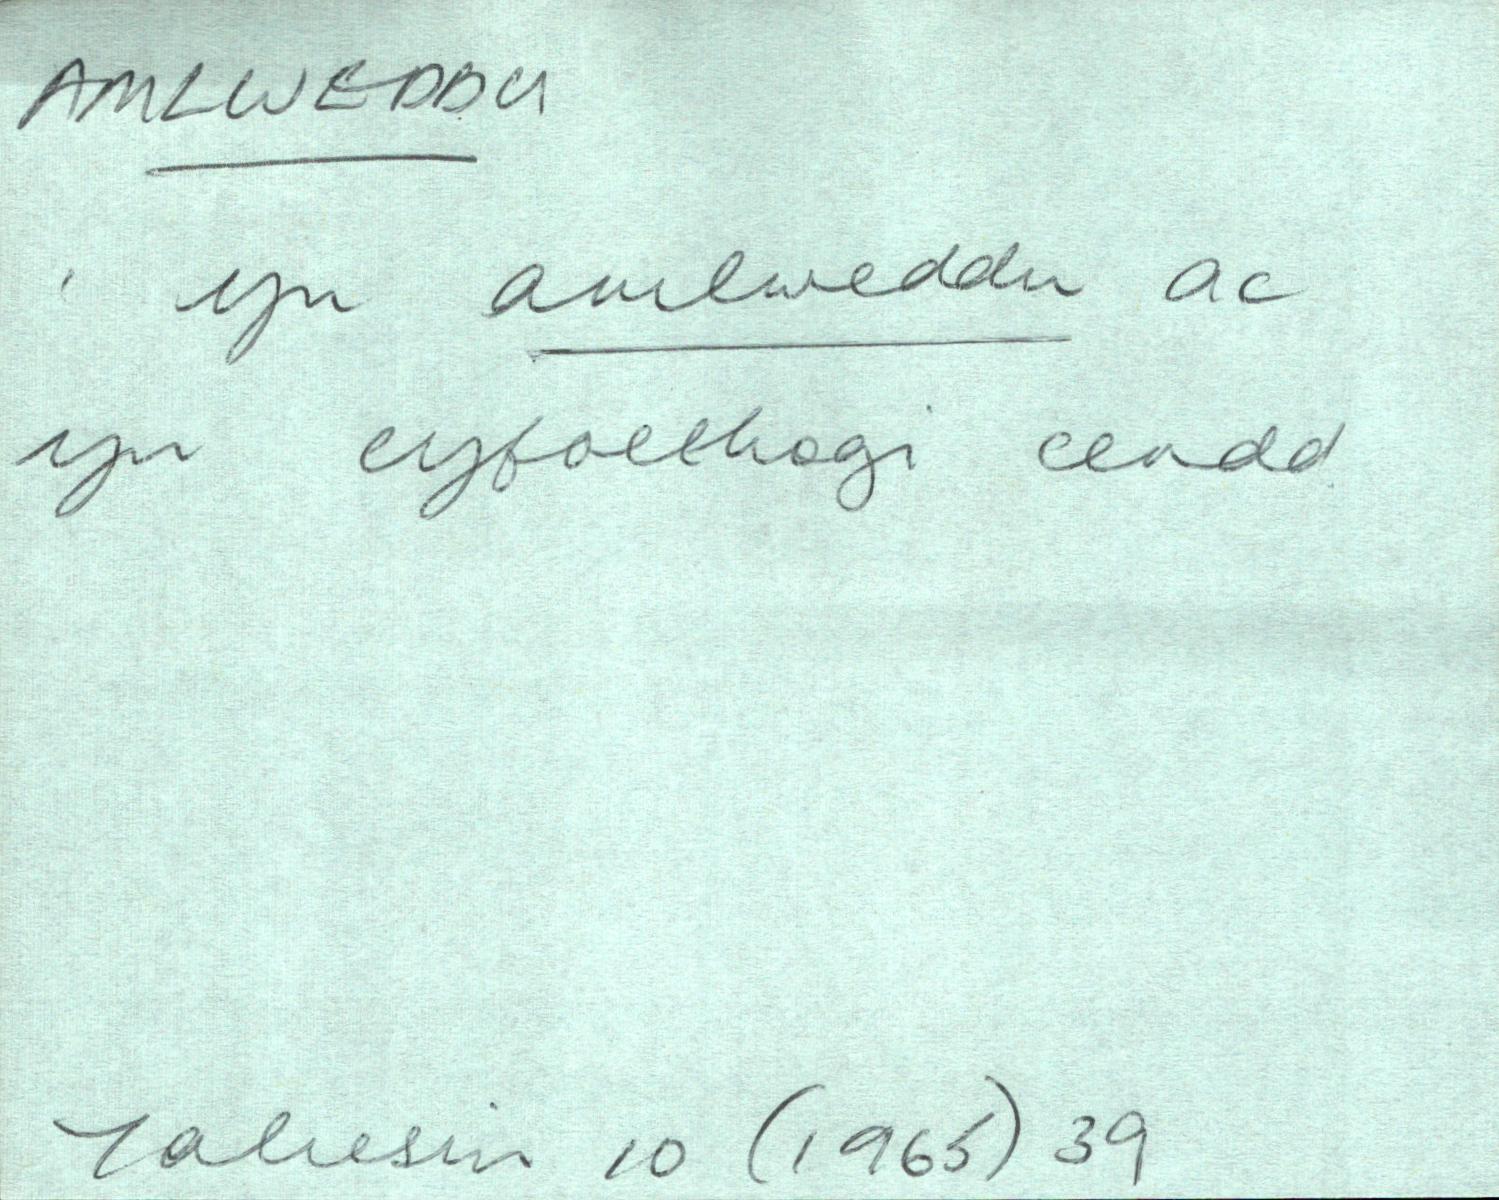 AMLWEDDU
' yn amlweddu ac
yn cyfoethogi cerdd
Taliesin 10 (1965) 39